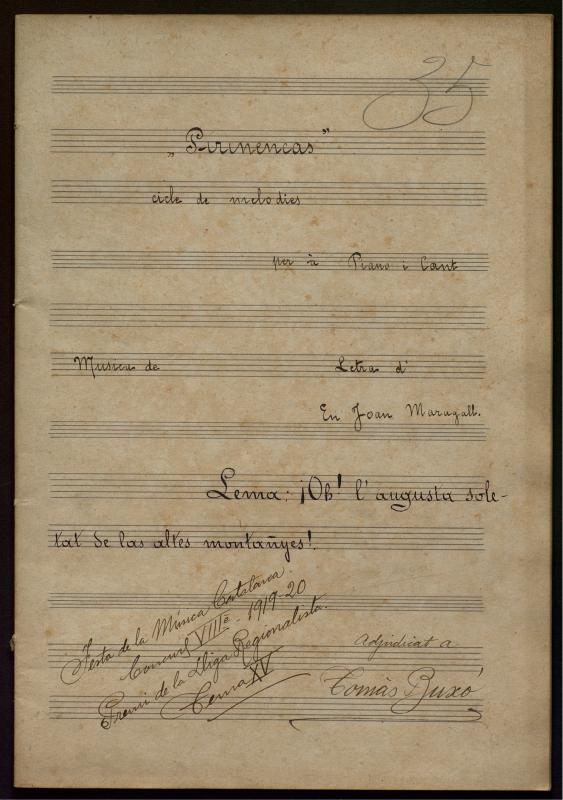 35
„Pirinencas"
cicle de melodies
per à Piano i Cant
Musica de
Letra d'
En Joan Maragall.
Lema: ¡Oh! l'augusta sole-
tat de las altes montañyes!.
Festa de la Música Catalana.
Concurs VIIIè - 1919-20
Premi de la Lliga Regionalista.
Tema XV
Adjudicat a
Tomàs Buxó